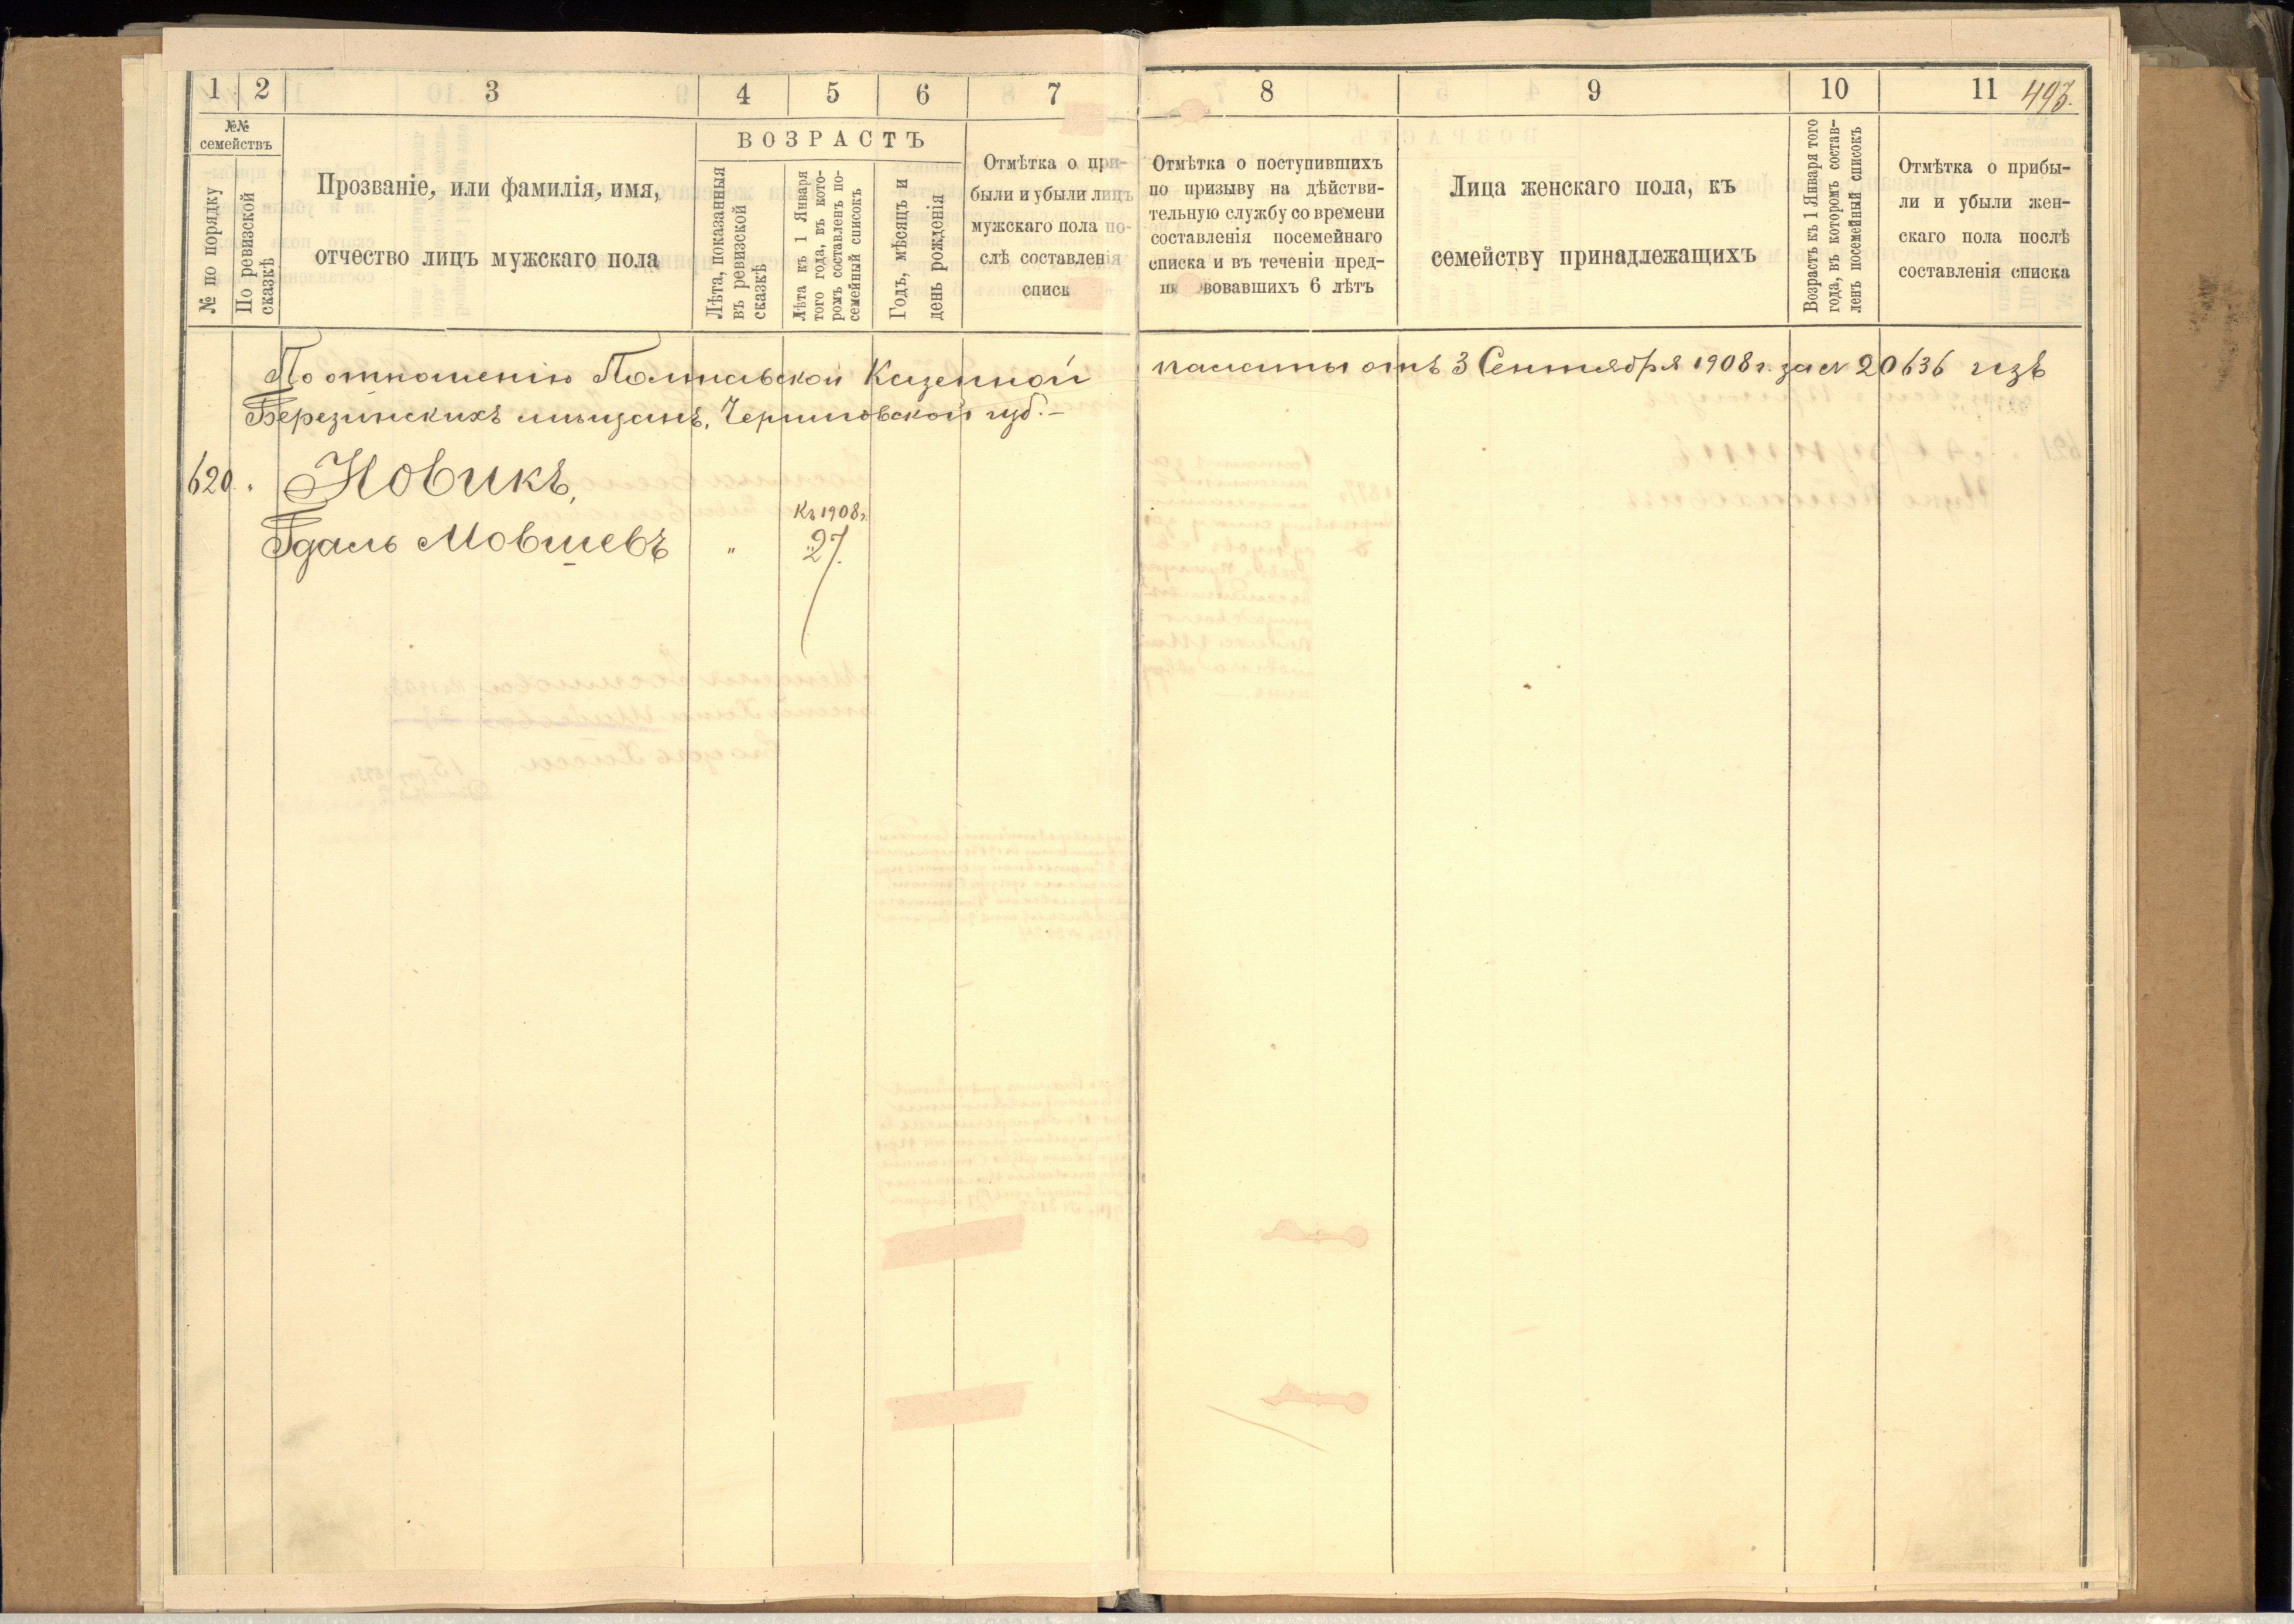 1 2 3 4 5 6 7 8 9 10 11 493.
№№ семействъ
№ по порядку
По ревизской сказкѣ
Прозваніе, или фамилія, имя,
отчество лицъ мужскаго пола
ВОЗРАСТЪ
Лѣта, показанныя
въ ревизской
сказкѣ
Лѣта къ 1 Января
того года, въ кото-
ромъ составленъ по-
семейный списокъ
Годъ, мѣсяцъ и
день рожденія
Отмѣтка о при-
были и убыли лицъ
мужскаго пола по-
слѣ составленія
списк
Отмѣтка о поступившихъ
по призыву на дѣйстви-
тельную службу со времени
составленія посемейнаго
списка и въ теченіи пред-
вовавшихъ 6 лѣтъ
Лица женскаго пола, къ
семейству принадлежащихъ
Возрастъ къ 1 Января того
года, въ которомъ состав-
ленъ посемейный списокъ
Отмѣтка о прибы-
ли и убыли жен-
скаго пола послѣ
составленія списка
По отношенію Полтавской Казенной палаты отъ 3 Сентября 1908 г. за № 20636 изъ
Березинскихъ мѣщанъ, Черниговской губ.—
620. Новикъ,
Къ 1908 г.
Гдаль Мовшевъ " 27.